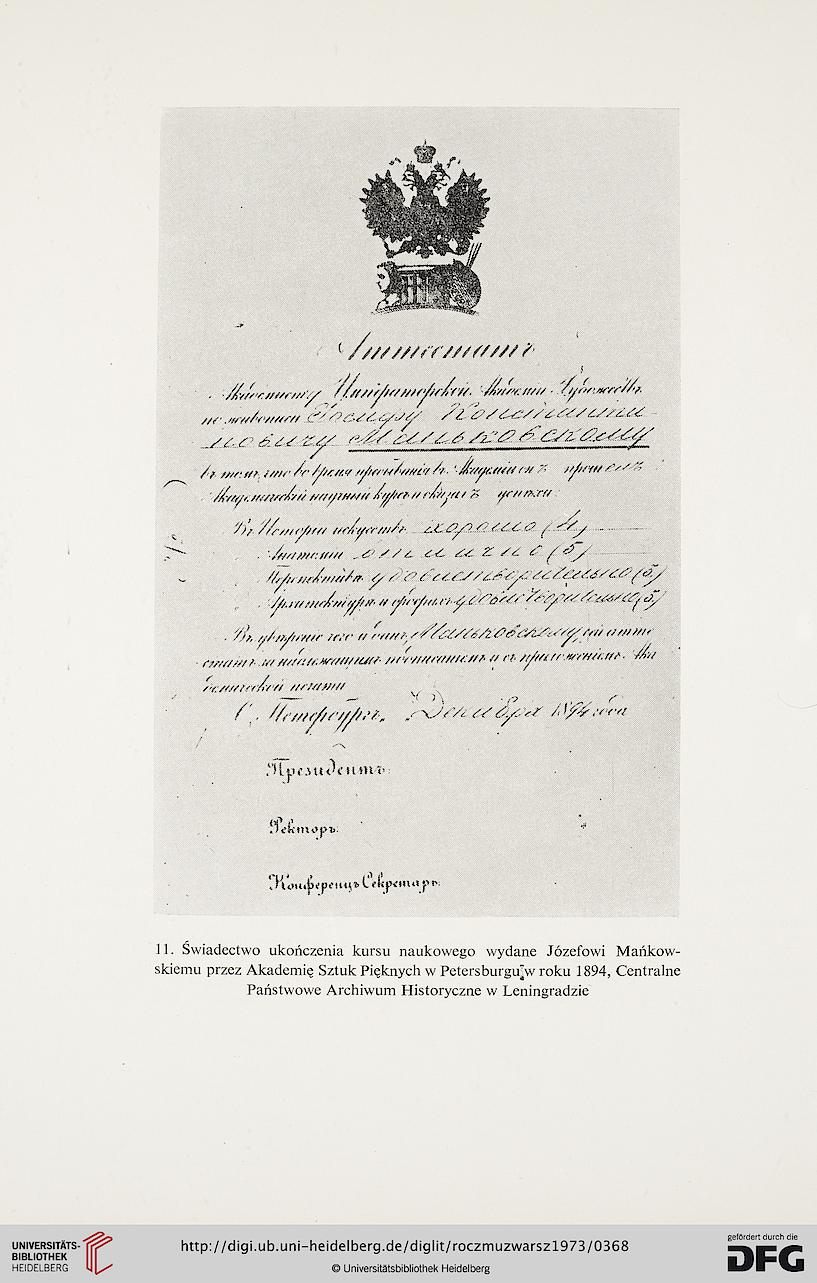 Аттестатъ
Академисту Императорской Академіи Художествъ
по живописи Іосифу Константи-
новичу Маньковскому
въ томъ, что во время пребыванія въ Академіи онъ прошелъ
Академическій научный курсъ и оказалъ успѣхи:
Въ Исторіи искусствъ хорошо (4)
Анатоміи отлично (5)
Перспективѣ удовлетворительно (3)
Архитектурѣ и удовлетворительно (3)
Въ увѣреніе чего и данъ, Маньковскому, сей атте-
статъ за надлежащимъ подписаніемъ и съ приложеніемъ Ака
демической печати
С. Петербургъ, Декабря 1894 года
Президентъ:
Ректоръ:
Конференцъ Секретарь:
11. Świadectwo ukończenia kursu naukowego wydane Józefowi Mańkow-
skiemu przez Akademię Sztuk Pięknych w Petersburgu w roku 1894, Centralne
Państwowe Archiwum Historyczne w Leningradzie
UNIVERSITÄTS-
BIBLIOTHEK
HEIDELBERG
http://digi.ub.uni-heidelberg.de/diglit/roczmuzwarsz1973/0368
© Universitätsbibliothek Heidelberg
gefördert durch die
DFG